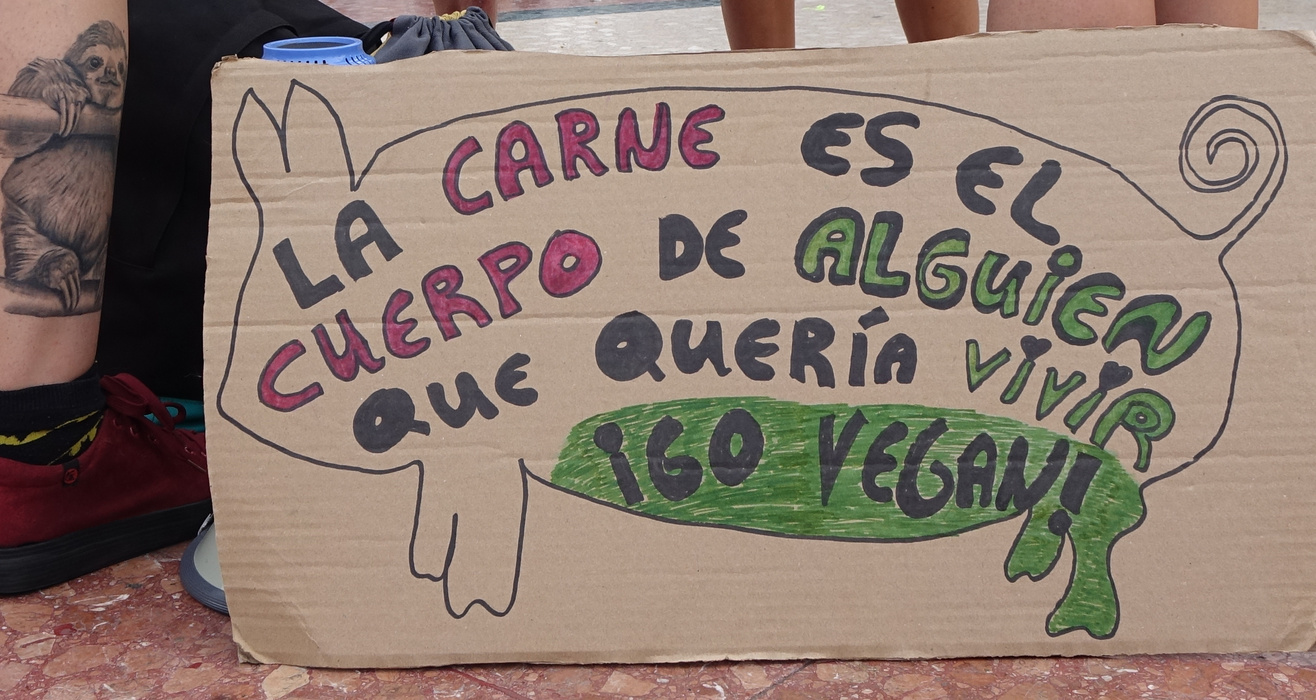 LA CARNE ES EL
CUERPO DE ALGUIEN
QUE QUERÍA VIVIR
¡GO VEGAN!